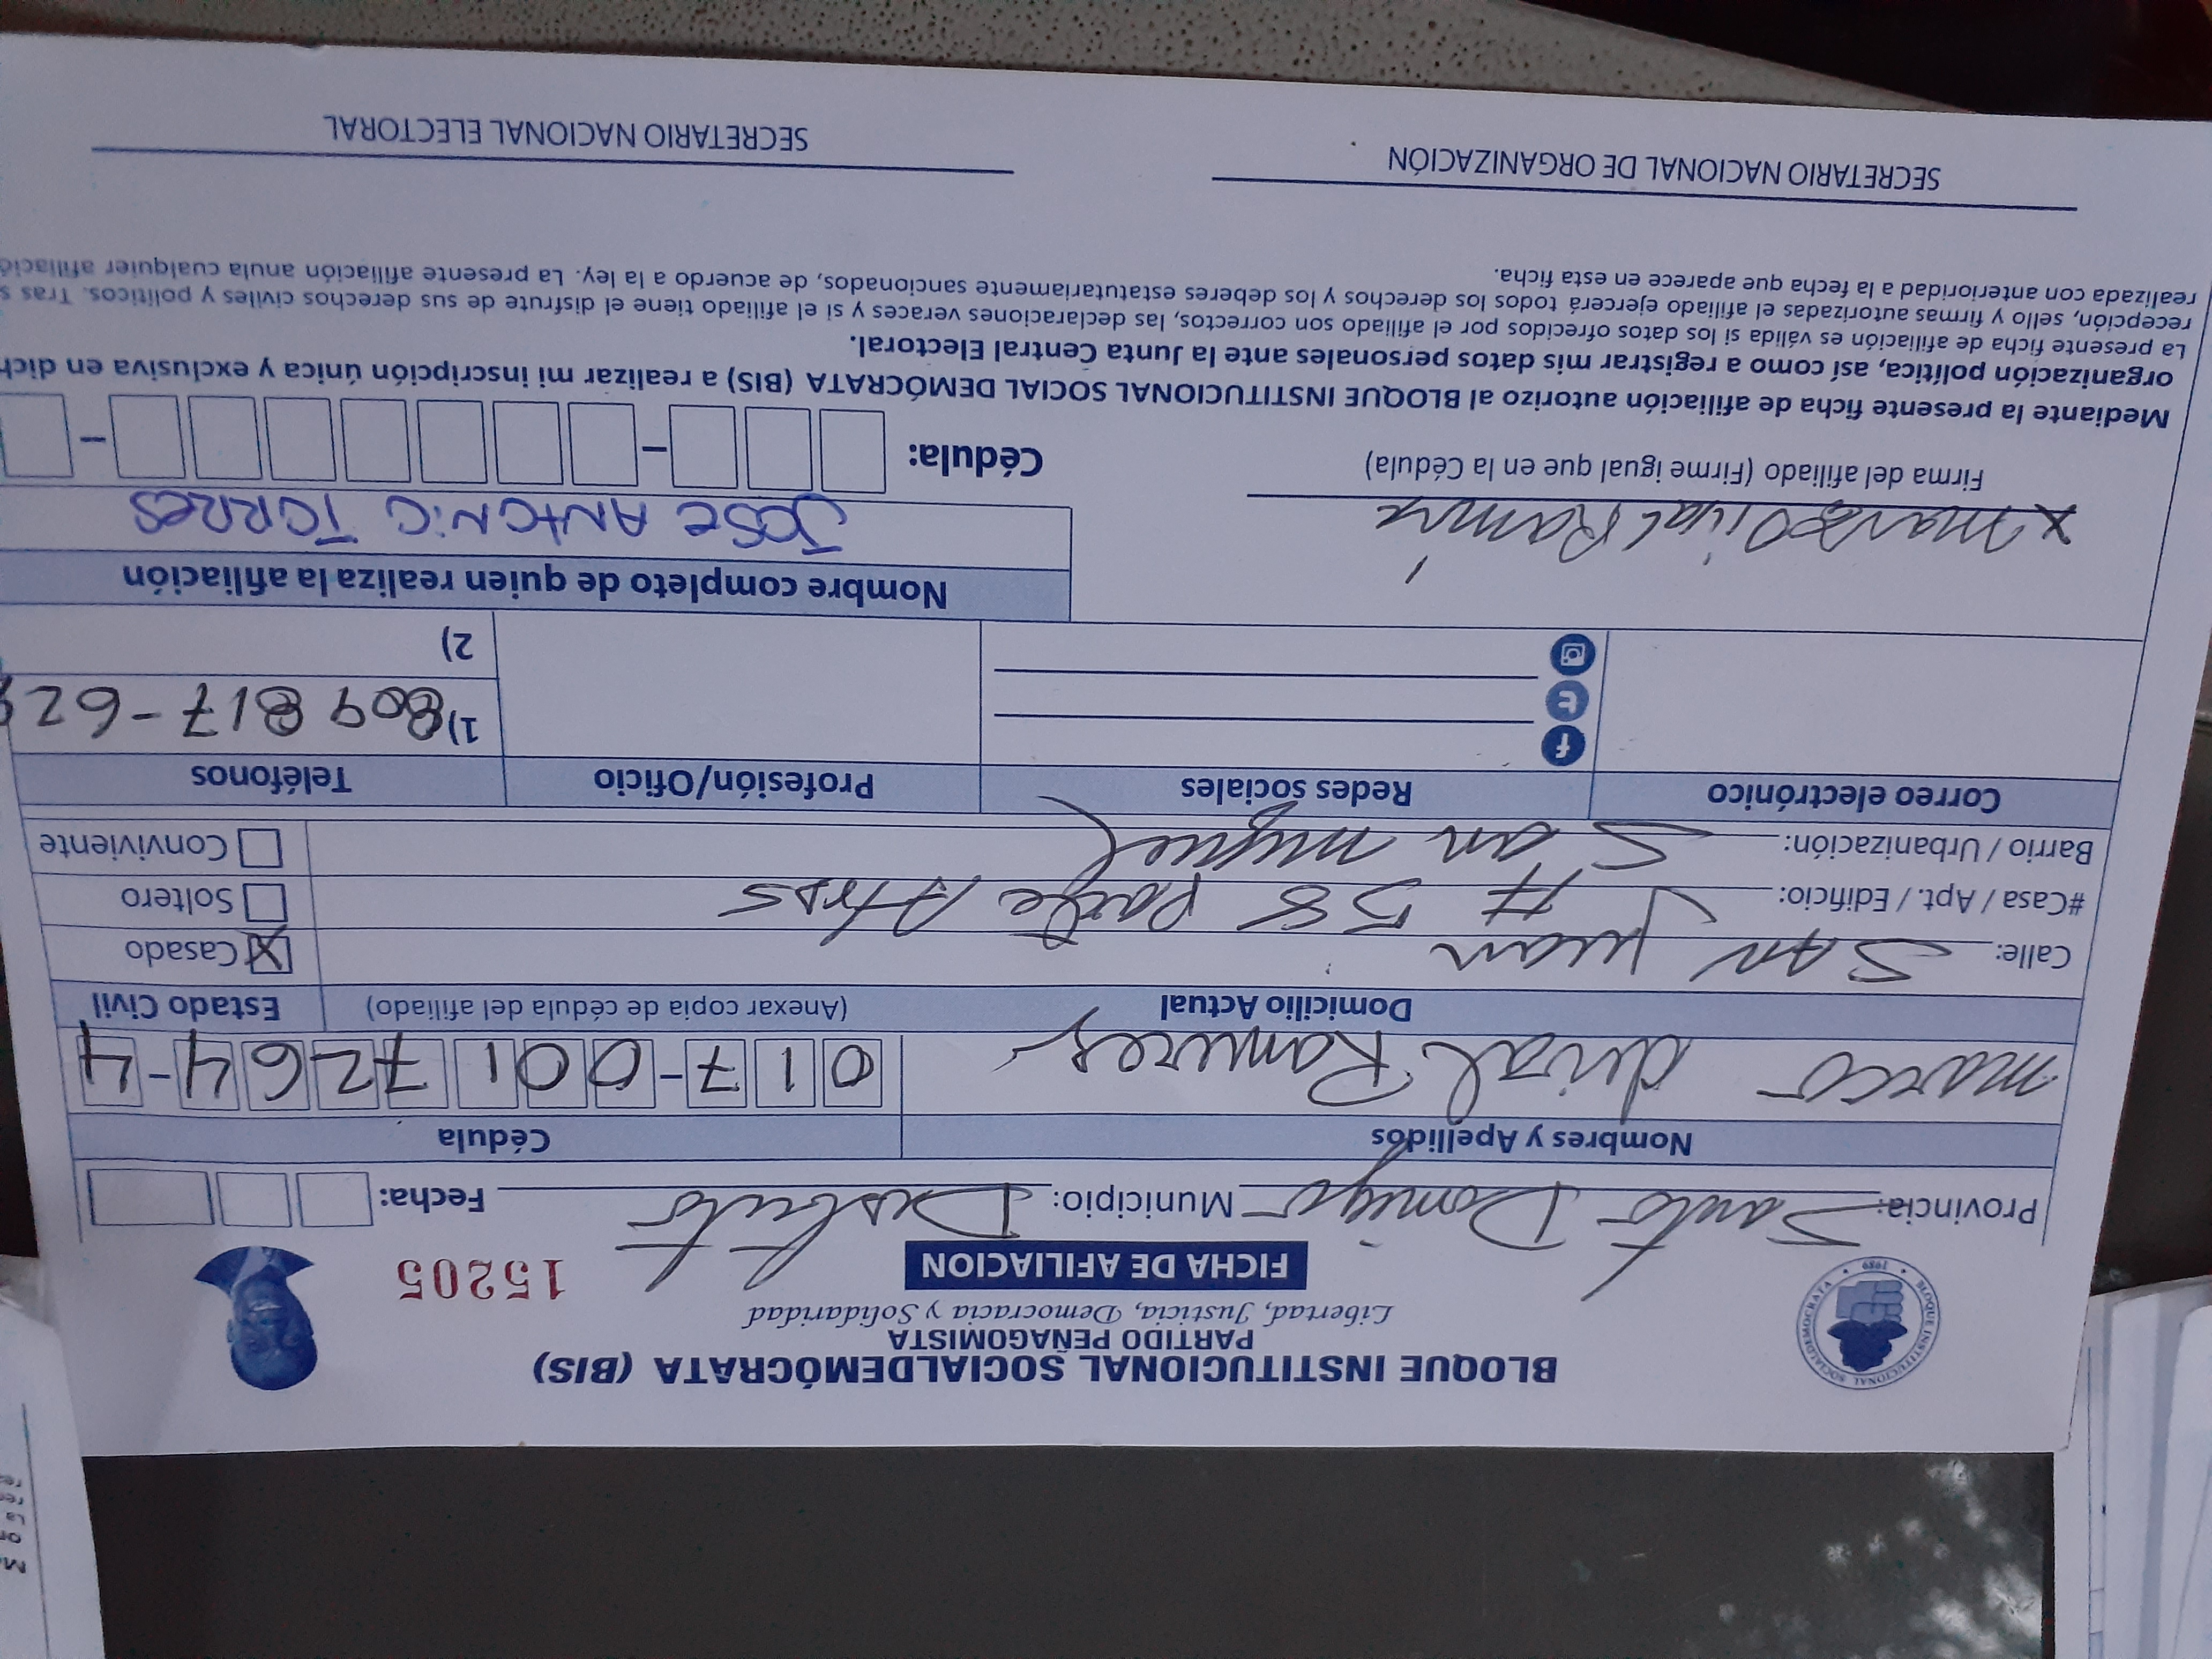 BLOQUE INSTITUCIONAL SOCIALDEMÓCRATA (BIS)
PARTIDO PEÑAGOMISTA
Libertad, Justicia, Democracia y Solidaridad
FICHA DE AFILIACION
15205
BLOQUE INSTITUCIONAL SOCIALDEMOCRATA
1989
Provincia: Santo Domigo Municipio: Distrito Fecha:
Nombres y Apellidos Cédula
marco Ramires 017-0017264-4
Domicilio Actual (Anexar copia de cédula del afiliado) Estado Civil
Calle: SAN Juan X Casado
#Casa / Apt. / Edificio: # 58 Parte Atras Soltero
Barrio / Urbanización: San miguel Conviviente
Correo electrónico Redes sociales Profesión/Oficio Teléfonos
1) 809 817-62
2)
Nombre completo de quien realiza la afiliación
x Ramire JOSE ANTONIO TORRES
Firma del afiliado (Firme igual que en la Cédula) Cédula:
Mediante la presente ficha de afiliación autorizo al BLOQUE INSTITUCIONAL SOCIAL DEMÓCRATA (BIS) a realizar mi inscripción única y exclusiva en dich
organización política, así como a registrar mis datos personales ante la Junta Central Electoral.
La presente ficha de afiliación es válida si los datos ofrecidos por el afiliado son correctos, las declaraciones veraces y si el afiliado tiene el disfrute de sus derechos civiles y políticos. Tras s
recepción, sello y firmas autorizadas el afiliado ejercerá todos los derechos y los deberes estatutariamente sancionados, de acuerdo a la ley. La presente afiliación anula cualquier afiliació
realizada con anterioridad a la fecha que aparece en esta ficha.
SECRETARIO NACIONAL DE ORGANIZACIÓN SECRETARIO NACIONAL ELECTORAL